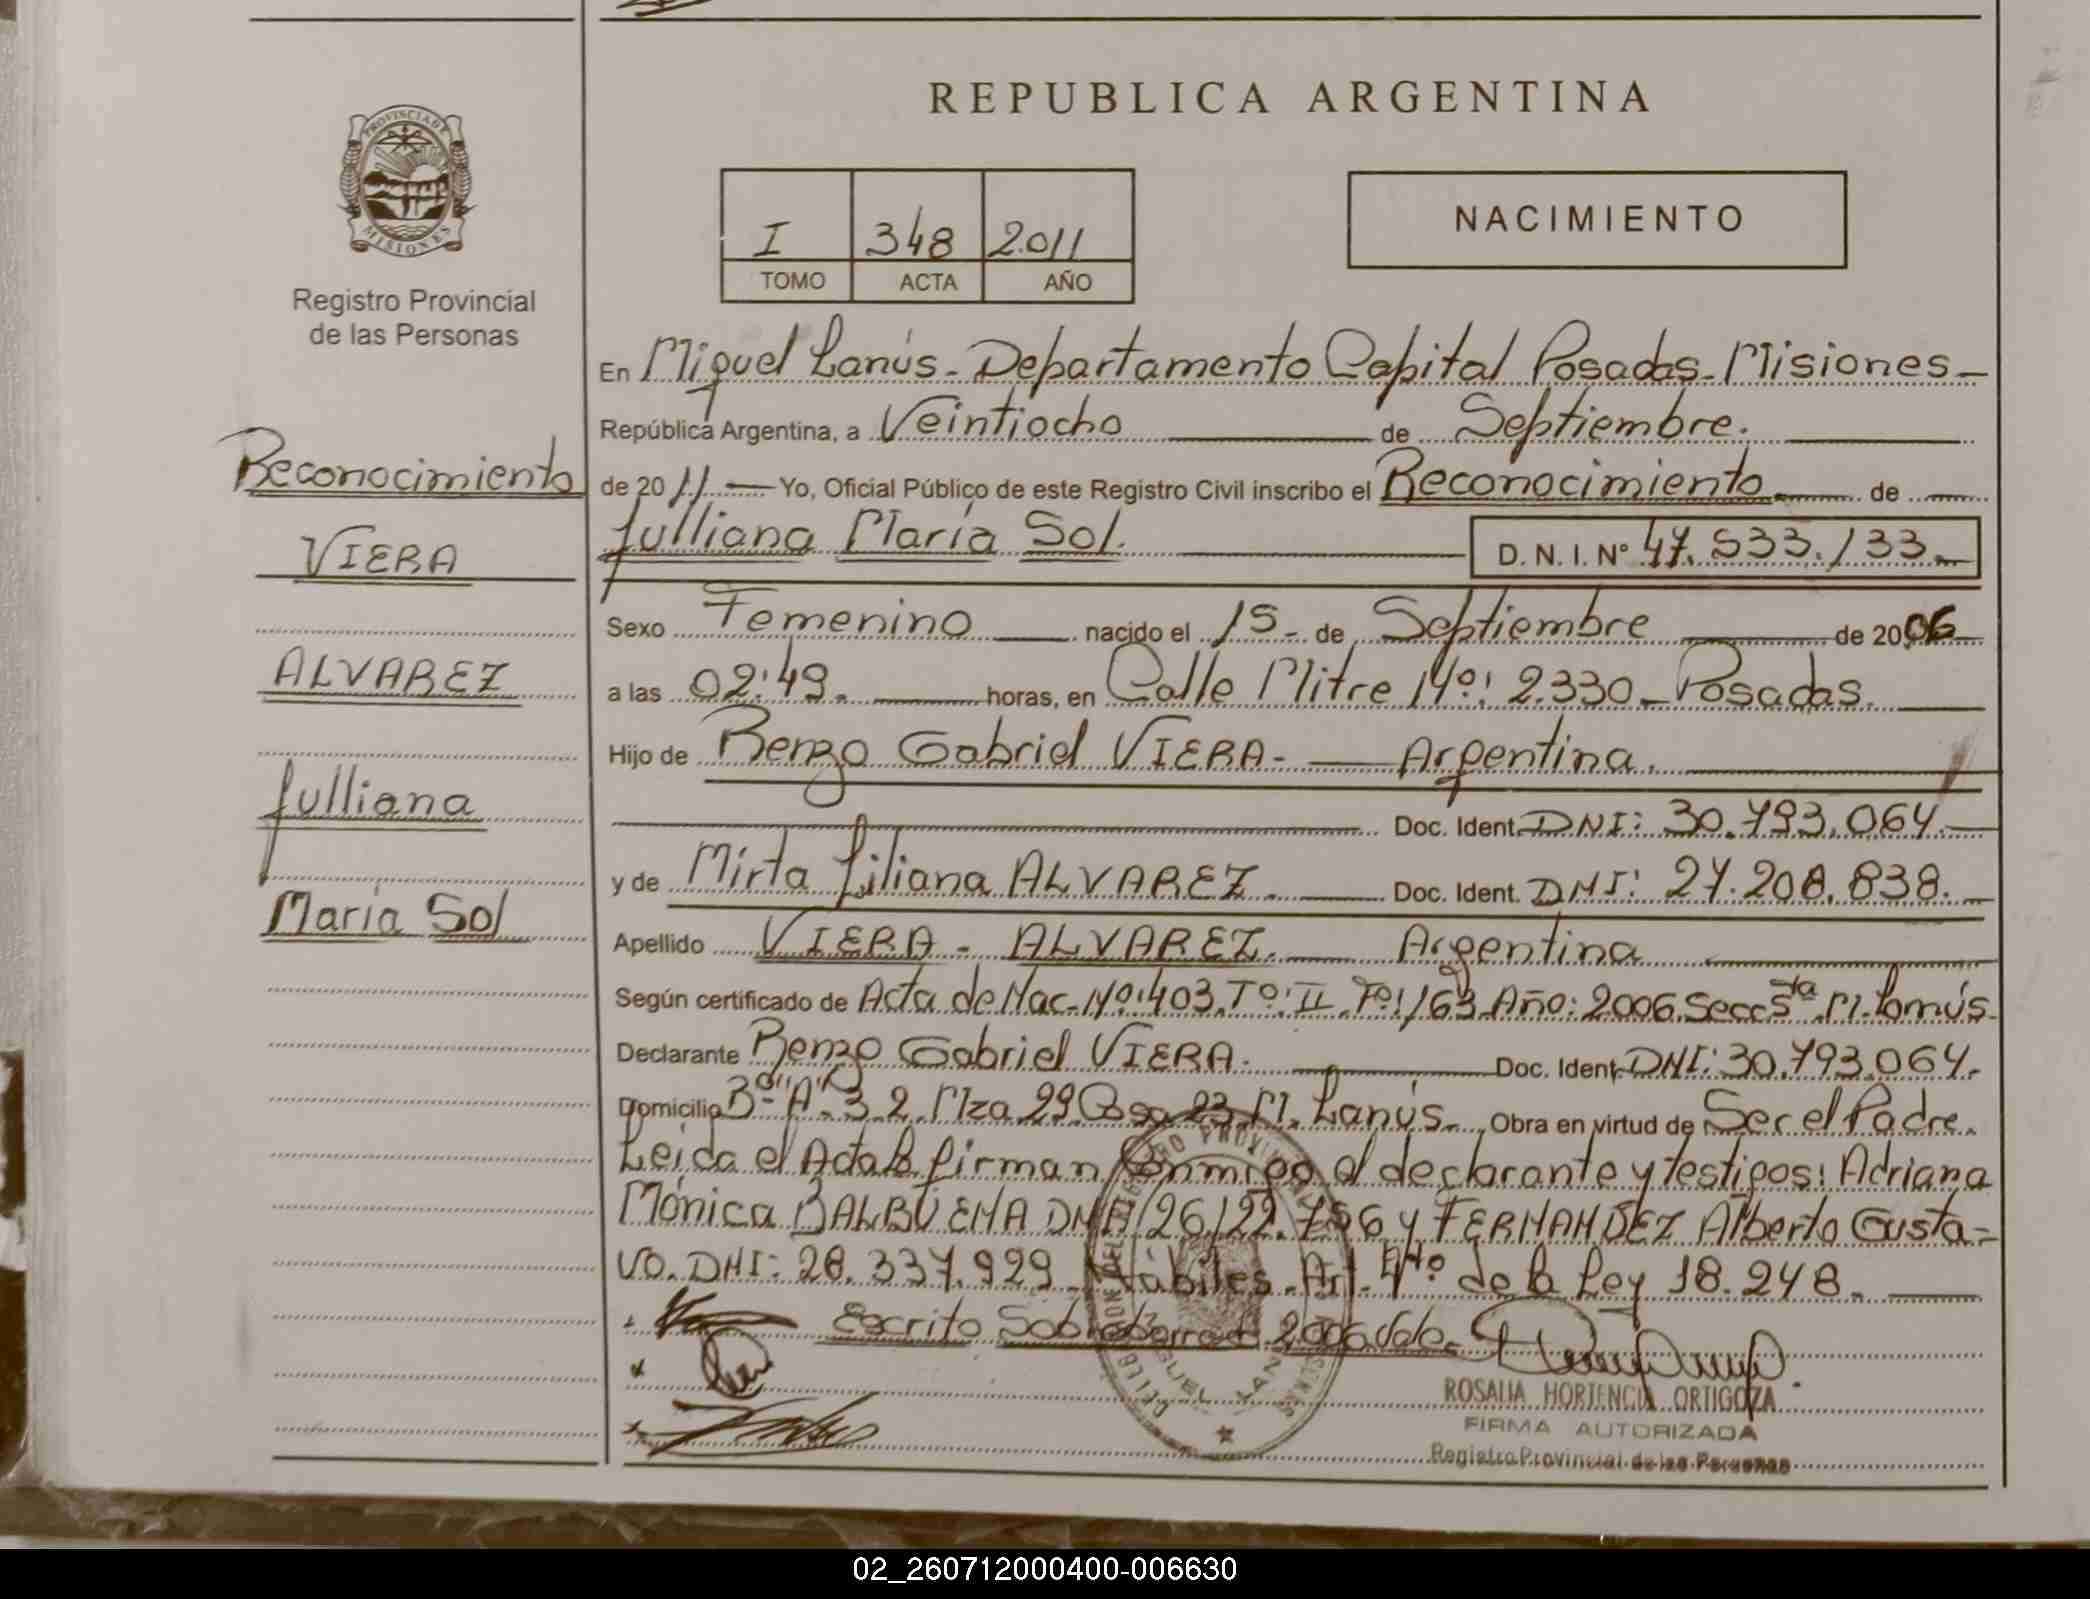 REPUBLICA ARGENTINA
PROVINCIA DE MISIONES
Registro Provincial
de las Personas
I 348 2.011
TOMO ACTA AÑO
NACIMIENTO
Reconocimiento
VIERA
ALVAREZ
Julliana
María Sol
En Miguel Lanús - Departamento Capital Posadas - Misiones -
República Argentina, a Veintiocho de Septiembre.
de 2011 Yo, Oficial Público de este Registro Civil inscribo el Reconocimiento de
Julliana María Sol. D. N. I. Nº 47.533.133.
Sexo Femenino nacido el 15 - de Septiembre de 2006
a las 02:49. horas, en Calle Mitre Nº: 2.330 - Posadas.
Hijo de Renzo Gabriel VIERA - Argentina.
Doc. Ident. DNI: 30.793.064.
y de Mirta Liliana ALVAREZ. Doc. Ident. DNI: 27.208.838.
Apellido VIERA - ALVAREZ. Argentina
Según certificado de Acta de Nac. Nº: 403. Tº: II. Fº: 163 Año: 2006. Secc 5ta M. Lanús.
Declarante Renzo Gabriel VIERA. Doc. Ident. DNI: 30.793.064.
Domicilio Bº "A" 3.2. Mza 29 Casa 23 M. Lanús. Obra en virtud de Ser el Padre.
Leída el Acta la firman Conmigo el declarante y testigos: Adriana
Mónica BALBUENA DNI 26.122.756 y FERNANDEZ Alberto Gusta=
vo. DNI: 28.337.929 - Hábiles - Art. 4to de la Ley 18.248.
Escrito Sobreborrado 2006 Vale.
ROSALIA HORTENCIA ORTIGOZA
FIRMA AUTORIZADA
Registro Provincial de las Personas
02_260712000400-006630